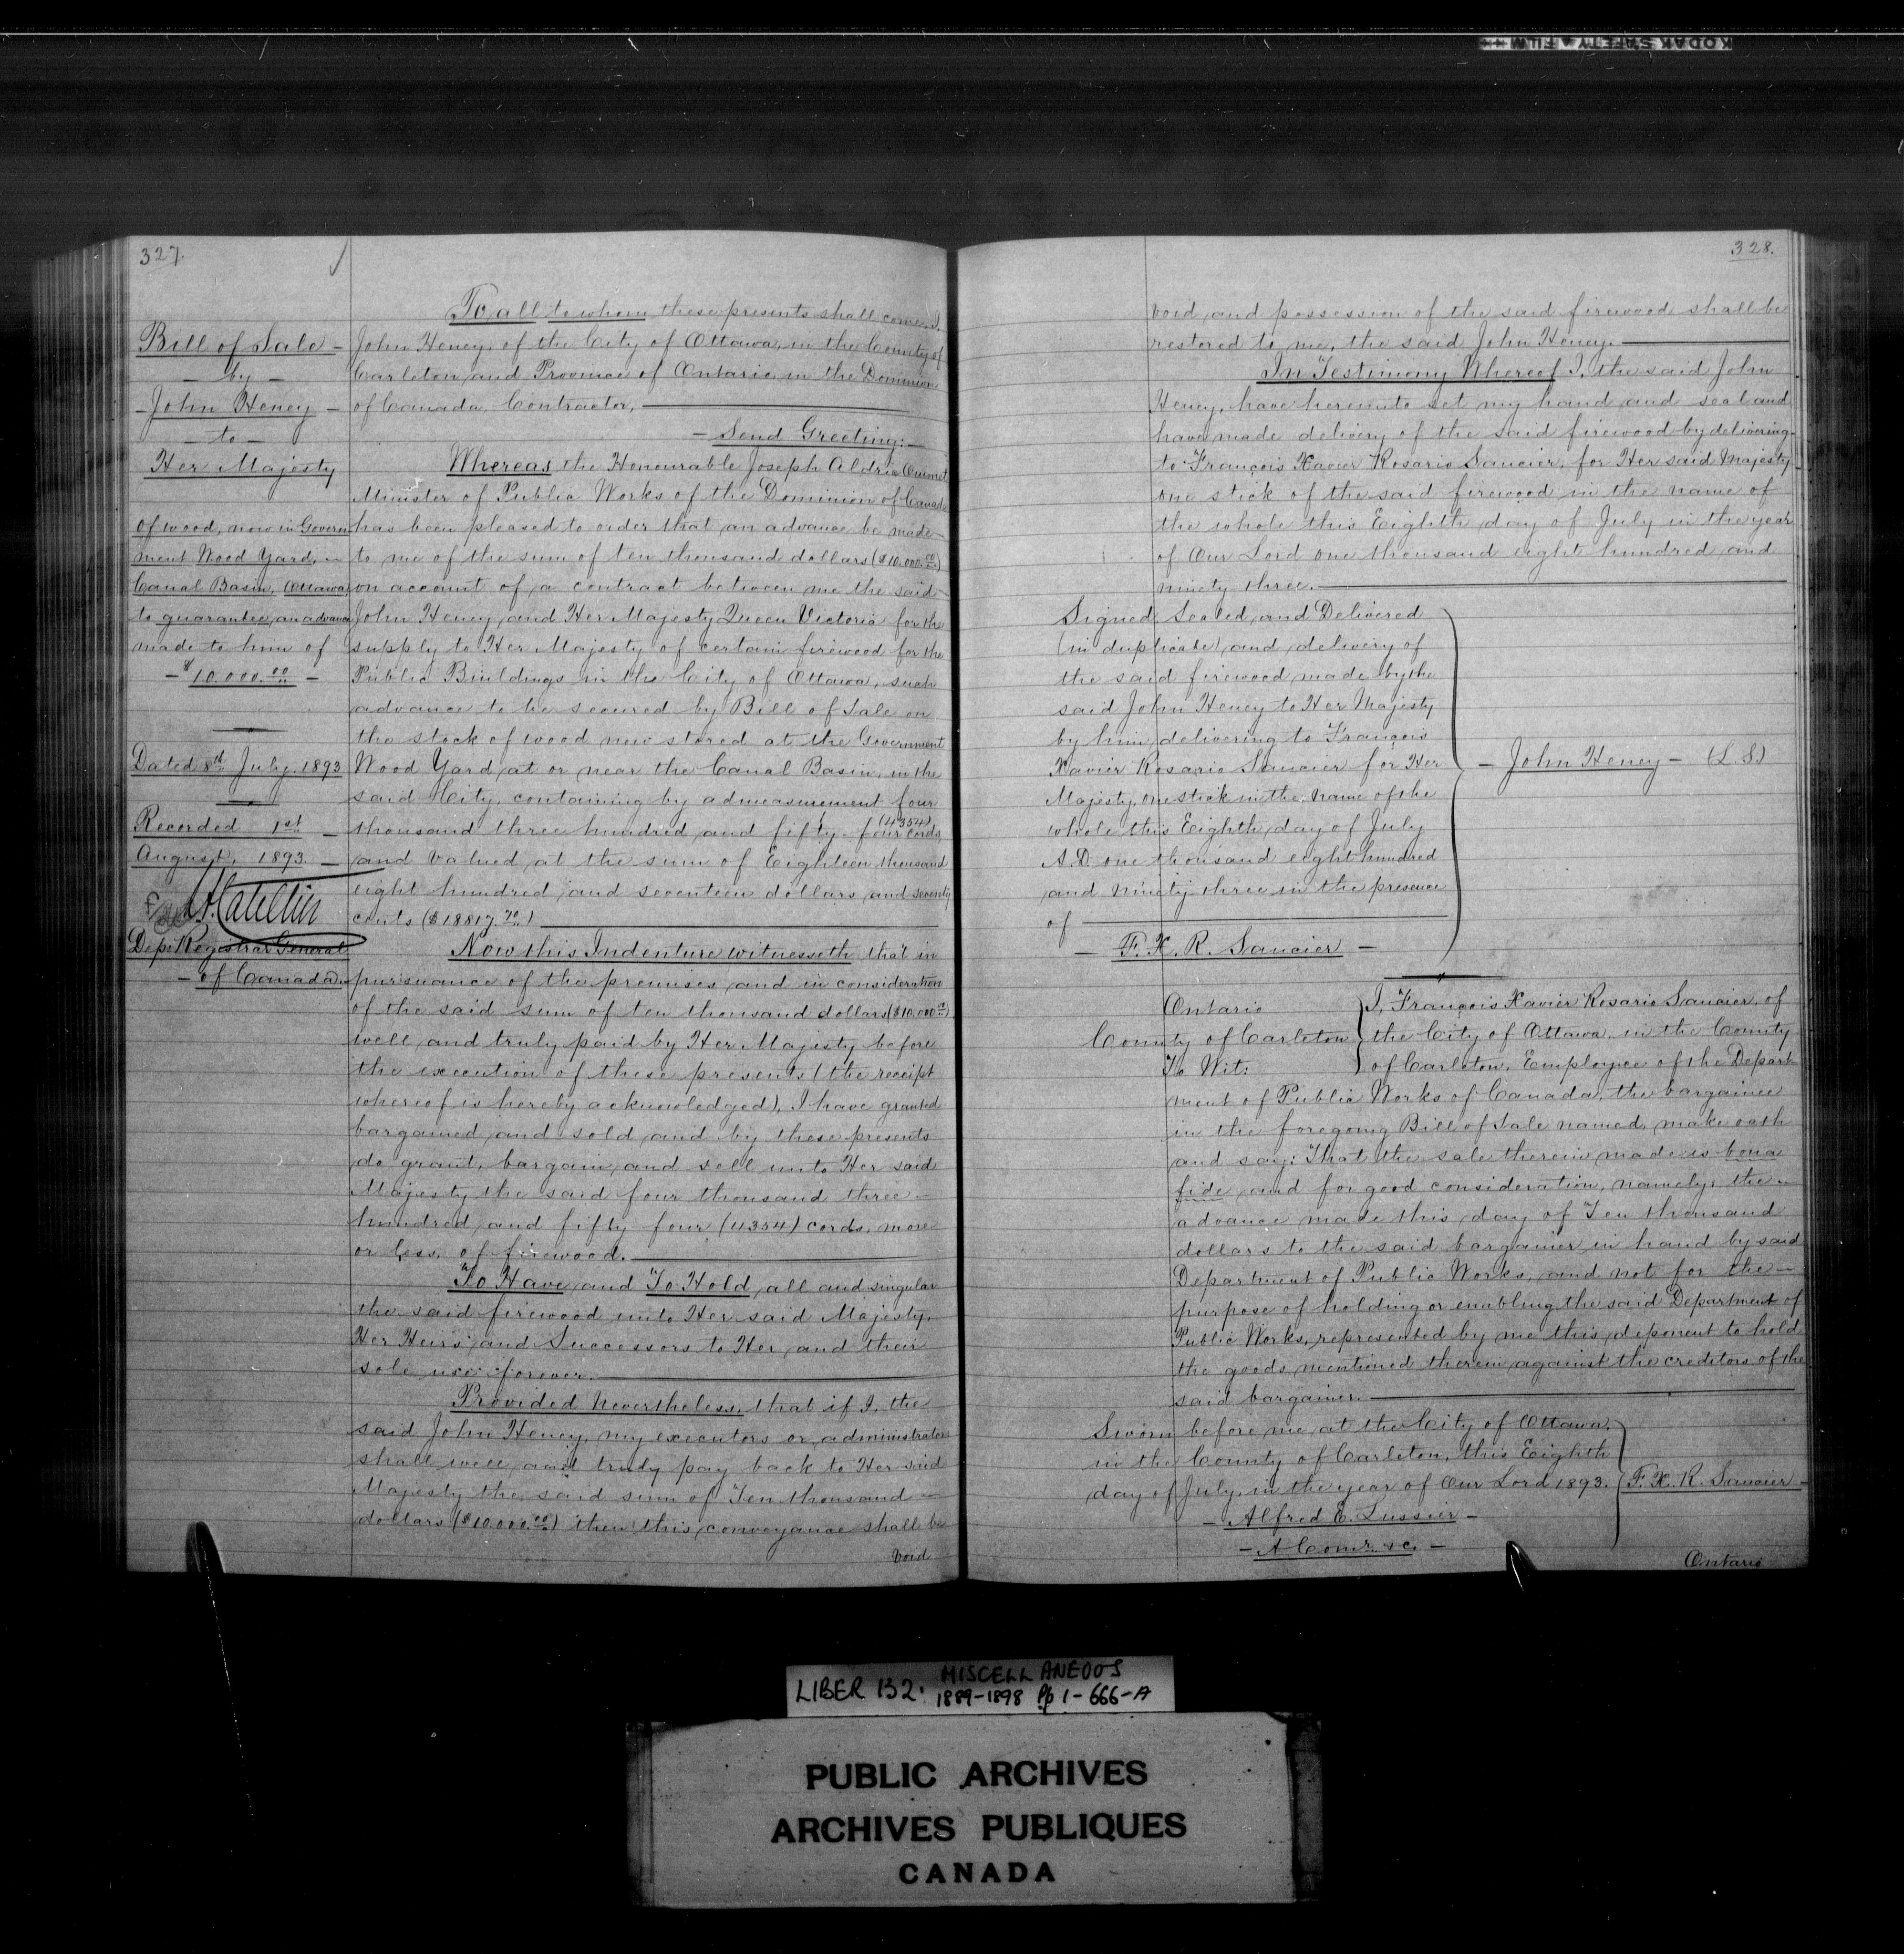 KODAK SAFETY FILM
327.
Bill of Sale -
- by -
- John Heney -
- to -
Her Majesty
of wood, now in Govern
ment Wood Yard, -
Canal Basin, Ottawa,
to guarantee an advance
made to him of
- $10.000.00 -
Dated 8th July 1893
Recorded 1st -
August, 1893. -
Dep. Registrar General
- of Canada.
To all to whom these presents shall come, I,
John Heney, of the City of Ottawa, in the County of
Carleton and Province of Ontario in the Dominion
of Canada, Contractor,
- Send Greeting: -
Whereas the Honourable Joseph Aldric Ouimet
Minister of Public Works of the Dominion of Canada
has been pleased to order that an advance be made
to me of the sum of ten thousand dollars ($10.000.00)
on account of a contract between me the said
John Heney and Her Majesty Queen Victoria for the
supply to Her Majesty of certain firewood for the
Public Buildings in the City of Ottawa, such
advance to be secured by Bill of Sale on
the stock of wood now stored at the Government
Wood Yard at or near the Canal Basin, in the
said City, containing by admeasurement four
thousand three hundred and fifty-four (4354) cords,
and valued at the sum of Eighteen thousand
eight hundred and seventeen dollars and seventy
cents ($18817.70)
Now this Indenture witnesseth that in
pursuance of the premises and in consideration
of the said sum of ten thousand dollars ($10.000.00)
well and truly paid by Her Majesty before
the execution of these presents (the receipt
whereof is hereby acknowledged), I have granted
bargained and sold and by these presents
do grant, bargain and sell unto Her said
Majesty the said four thousand three -
hundred and fifty-four (4354) cords, more
or less, of firewood.
To Have and To Hold all and singular
the said firewood unto Her said Majesty,
Her Heirs and Successors to Her and their
sole use forever.
Provided Nevertheless, that if I, the
said John Heney, my executors or administrators
shall well and truly pay back to Her said
Majesty the said sum of Ten thousand -
dollars ($10.000.00) then this conveyance shall be
void
328.
void and possession of the said firewood shall be
restored to me, the said John Heney.
In Testimony Whereof I, the said John
Heney, have hereunto set my hand and seal and
have made delivery of the said firewood by delivering
to François Xavier Rosario Saucier, for Her said Majesty
one stick of the said firewood in the name of
the whole this Eighth day of July in the year
of Our Lord one thousand eight hundred and
ninety three.
Signed, Sealed and Delivered
(in duplicate) and delivery of
the said firewood made by the
said John Heney to Her Majesty
by him delivering to François
Xavier Rosario Saucier for Her
Majesty, one stick in the name of the
whole this Eighth day of July
A.D. one thousand eight hundred
and ninety three in the presence
of
- F. X. R. Saucier -
- John Heney - (L.S)
Ontario
County of Carleton
To Wit:
I, François Xavier Rosario Saucier, of
the City of Ottawa in the County
of Carleton, Employee of the Depart
ment of Public Works of Canada, the bargainee
in the foregoing Bill of Sale named, make oath
and say: That the sale therein made is bona
fide, and for good consideration, namely, the -
advance made this day of Ten thousand
dollars to the said bargainer in hand by said
Department of Public Works, and not for the -
purpose of holding or enabling the said Department of
Public Works, represented by me this deponent to hold
the goods mentioned therein against the creditors of the
said bargainer.
Sworn before me at the City of Ottawa,
in the County of Carleton, this Eighth
day of July, in the year of Our Lord 1893.
- Alfred E. Lussier -
- A Comr. &c. -
F. X. R. Saucier -
Ontario
LIBER 132. MISCELLANEOUS
1889-1898 Pp 1-666-A
PUBLIC ARCHIVES
ARCHIVES PUBLIQUES
CANADA